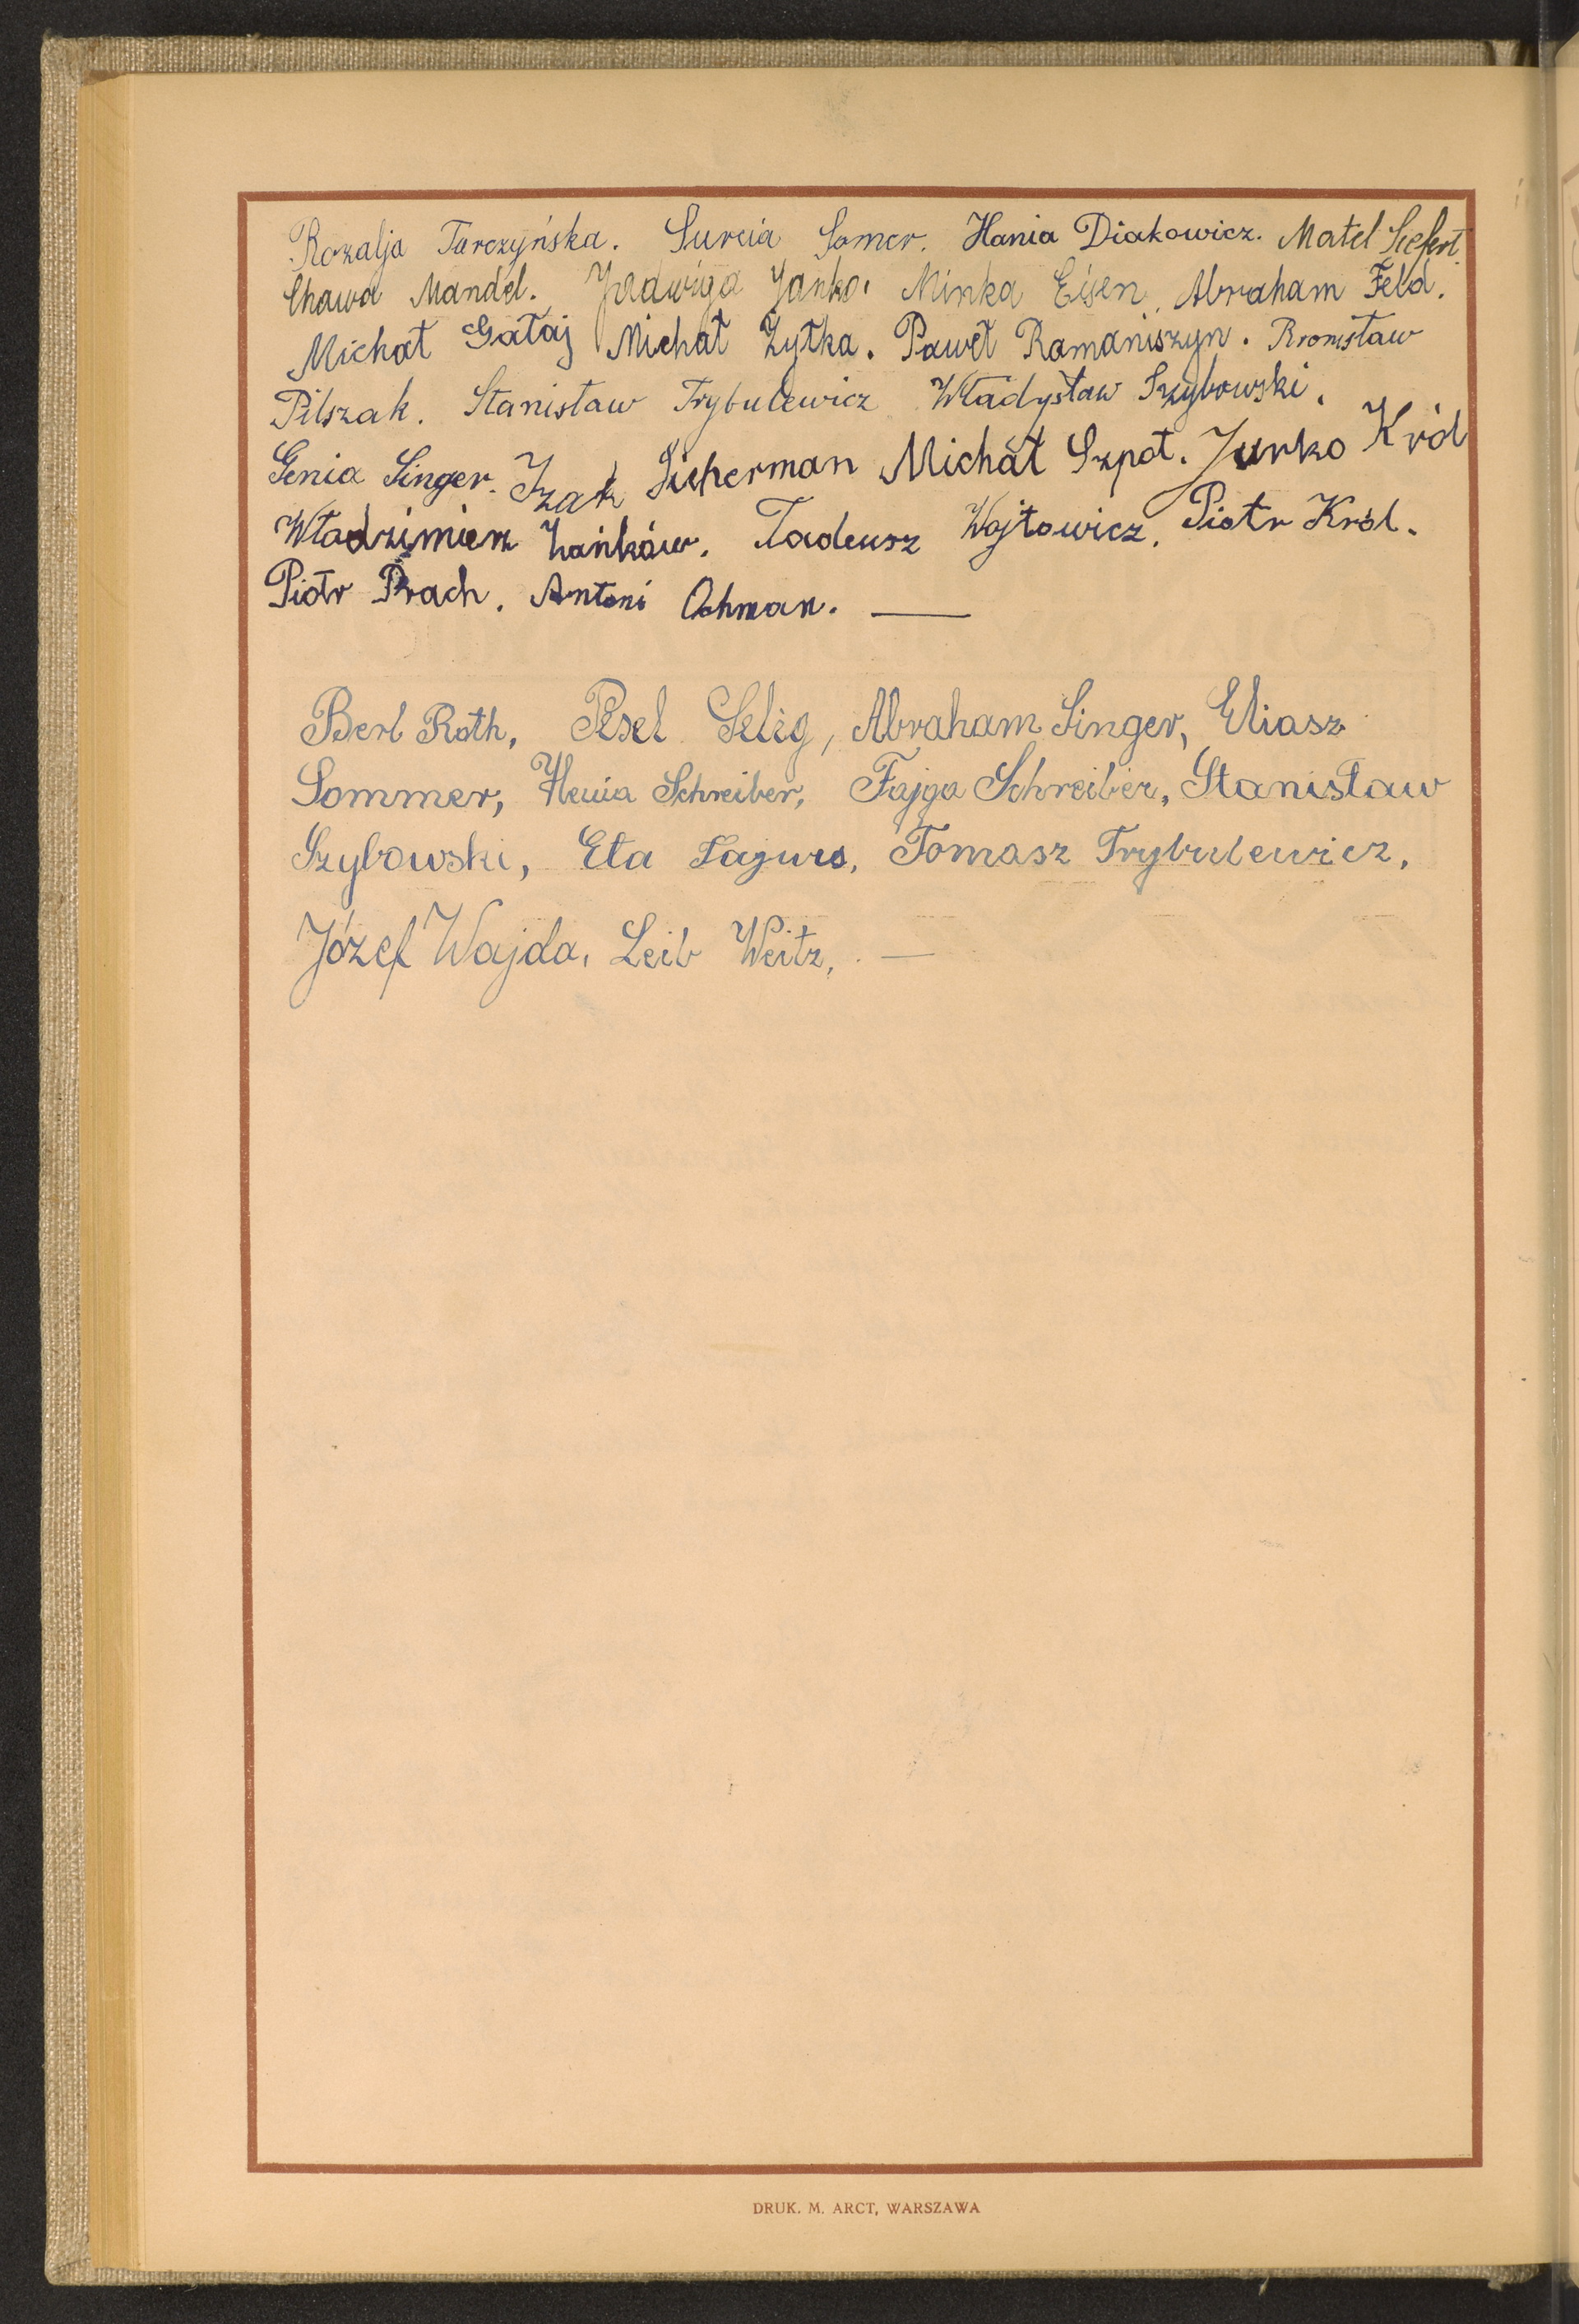 Rozalja Turczyńska. Surcia Somer. Hania Diakowicz. Matel Siefert.
Chawa Mandel. Jadwiga Janko. Minka Eisen, Abraham Feld.
Michał Gałaj Michał Żytka. Paweł Ramaniszyn. Bronisław
Pilszak. Stanisław Trybulewicz Władysław Szybowski.
Genia Singer. Izak Sicherman Michał Szpot. Jurko Król
Włodzimierz Zańków. Tadeusz Wojtowicz. Piotr Król.
Piotr Prach. Antoni Ochman. —
Berl Roth, Pesel Selig, Abraham Singer, Eliasz
Sommer, Henia Schreiber, Fajga Schreiber, Stanisław
Szybowski, Eta Tomasz Trybulewicz,
Józef Wajda, Leib Weitz, . —
DRUK. M. ARCT, WARSZAWA